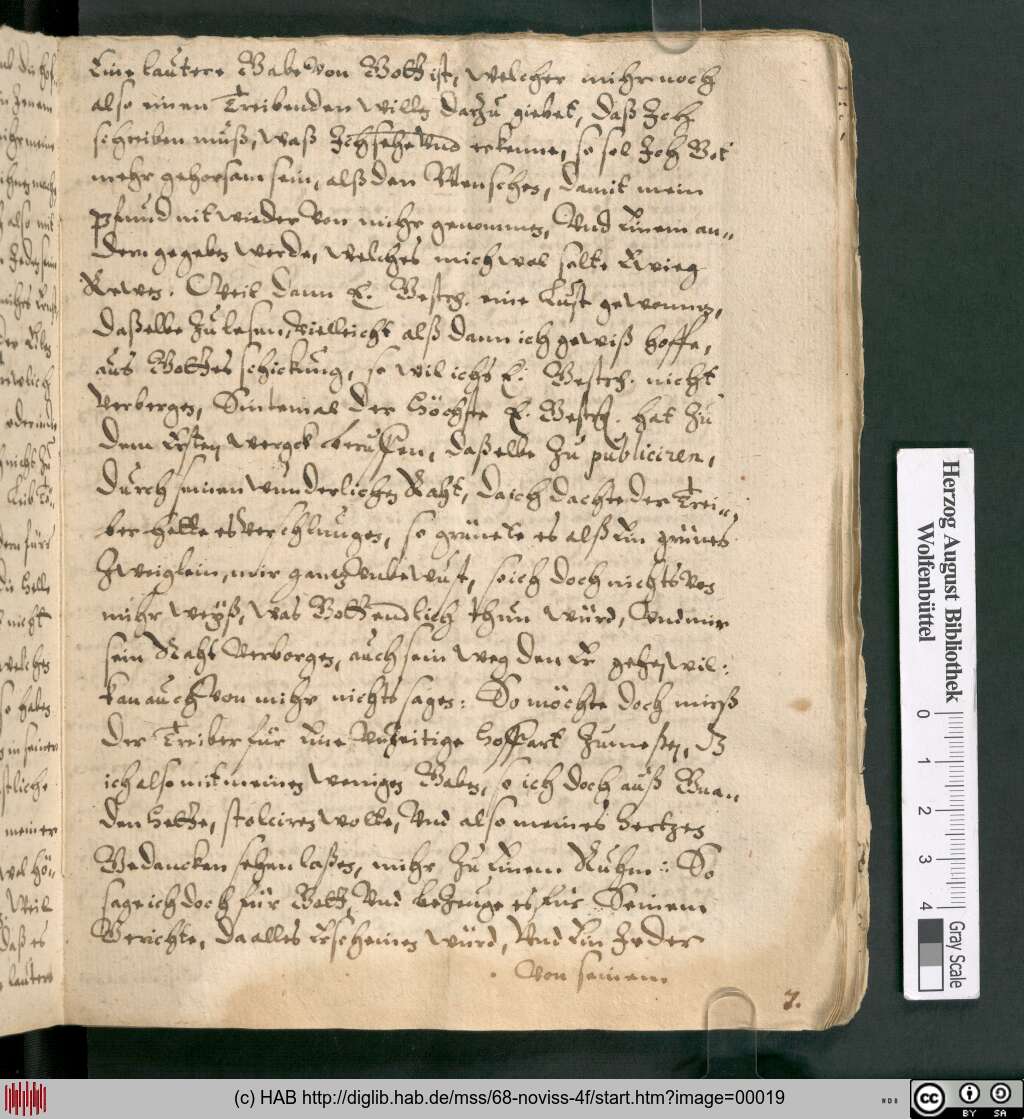 Eine lautere Gabe Von Gott ist, welcher mihr noch
also einen Treibenden willen darzu giebet, daß Ich
schreiben muß, waß Ich sehe Vnd erkenne, so sol Ich Got
mehr gehorsam sein, alß den Menschen, damit mein
Pfund nit wieder Von mihr genommen, Vnd Einem an,,
dern gegeben werde, welches mich wol solte Ewig
Rewen. Weil dann E. Gestr. eine Lust gewonnen,
daßelbe Zu lesen, Vielleicht alß dann ich gewiß hoffe,
aus Gottes schickung, so wil ichs E. Gestr. nicht
Verbergen, Sintemal der Höchste E. Gestr. hat Zu
dem Ersten werck beruffen, daßelbe Zu publiciren,
durch seinen wunderlichen Raht, da ich dachte der Trei,,
ber hette es verschlungen, so grünete es alß Ein grünes
Zweiglein, mir gantz unbewust, so ich doch nichts von
mihr weyß, was Gott endlich thun würd, Vnd mir
sein Raht Verborgen, auch sein weg den Er gehen wil:
kan auch Von mihr nichts sagen: So möchte doch mirß
der Treiber für Eine Vnzeitige hoffart Zumeßen, dz
ich also mit meinen wenigen Gaben, so ich doch auß Gna,,
den hette, stolciren wolte, Vnd also meines hertzen
Gedancken sehen laßen, mihr Zu Einem Ruhm: So
sage ich doch für Gott Vnd bezeuge es für Seinem
Gerichte, da alles Erscheinen würd, Vnd Ein Jeder
Von seinem
7.
Herzog August Bibliothek
Wolfenbüttel
0 1 2 3 4
Gray Scale
(c) HAB http://diglib.hab.de/mss/68-noviss-4f/start.htm?image=00019
WDB
cc BY SA